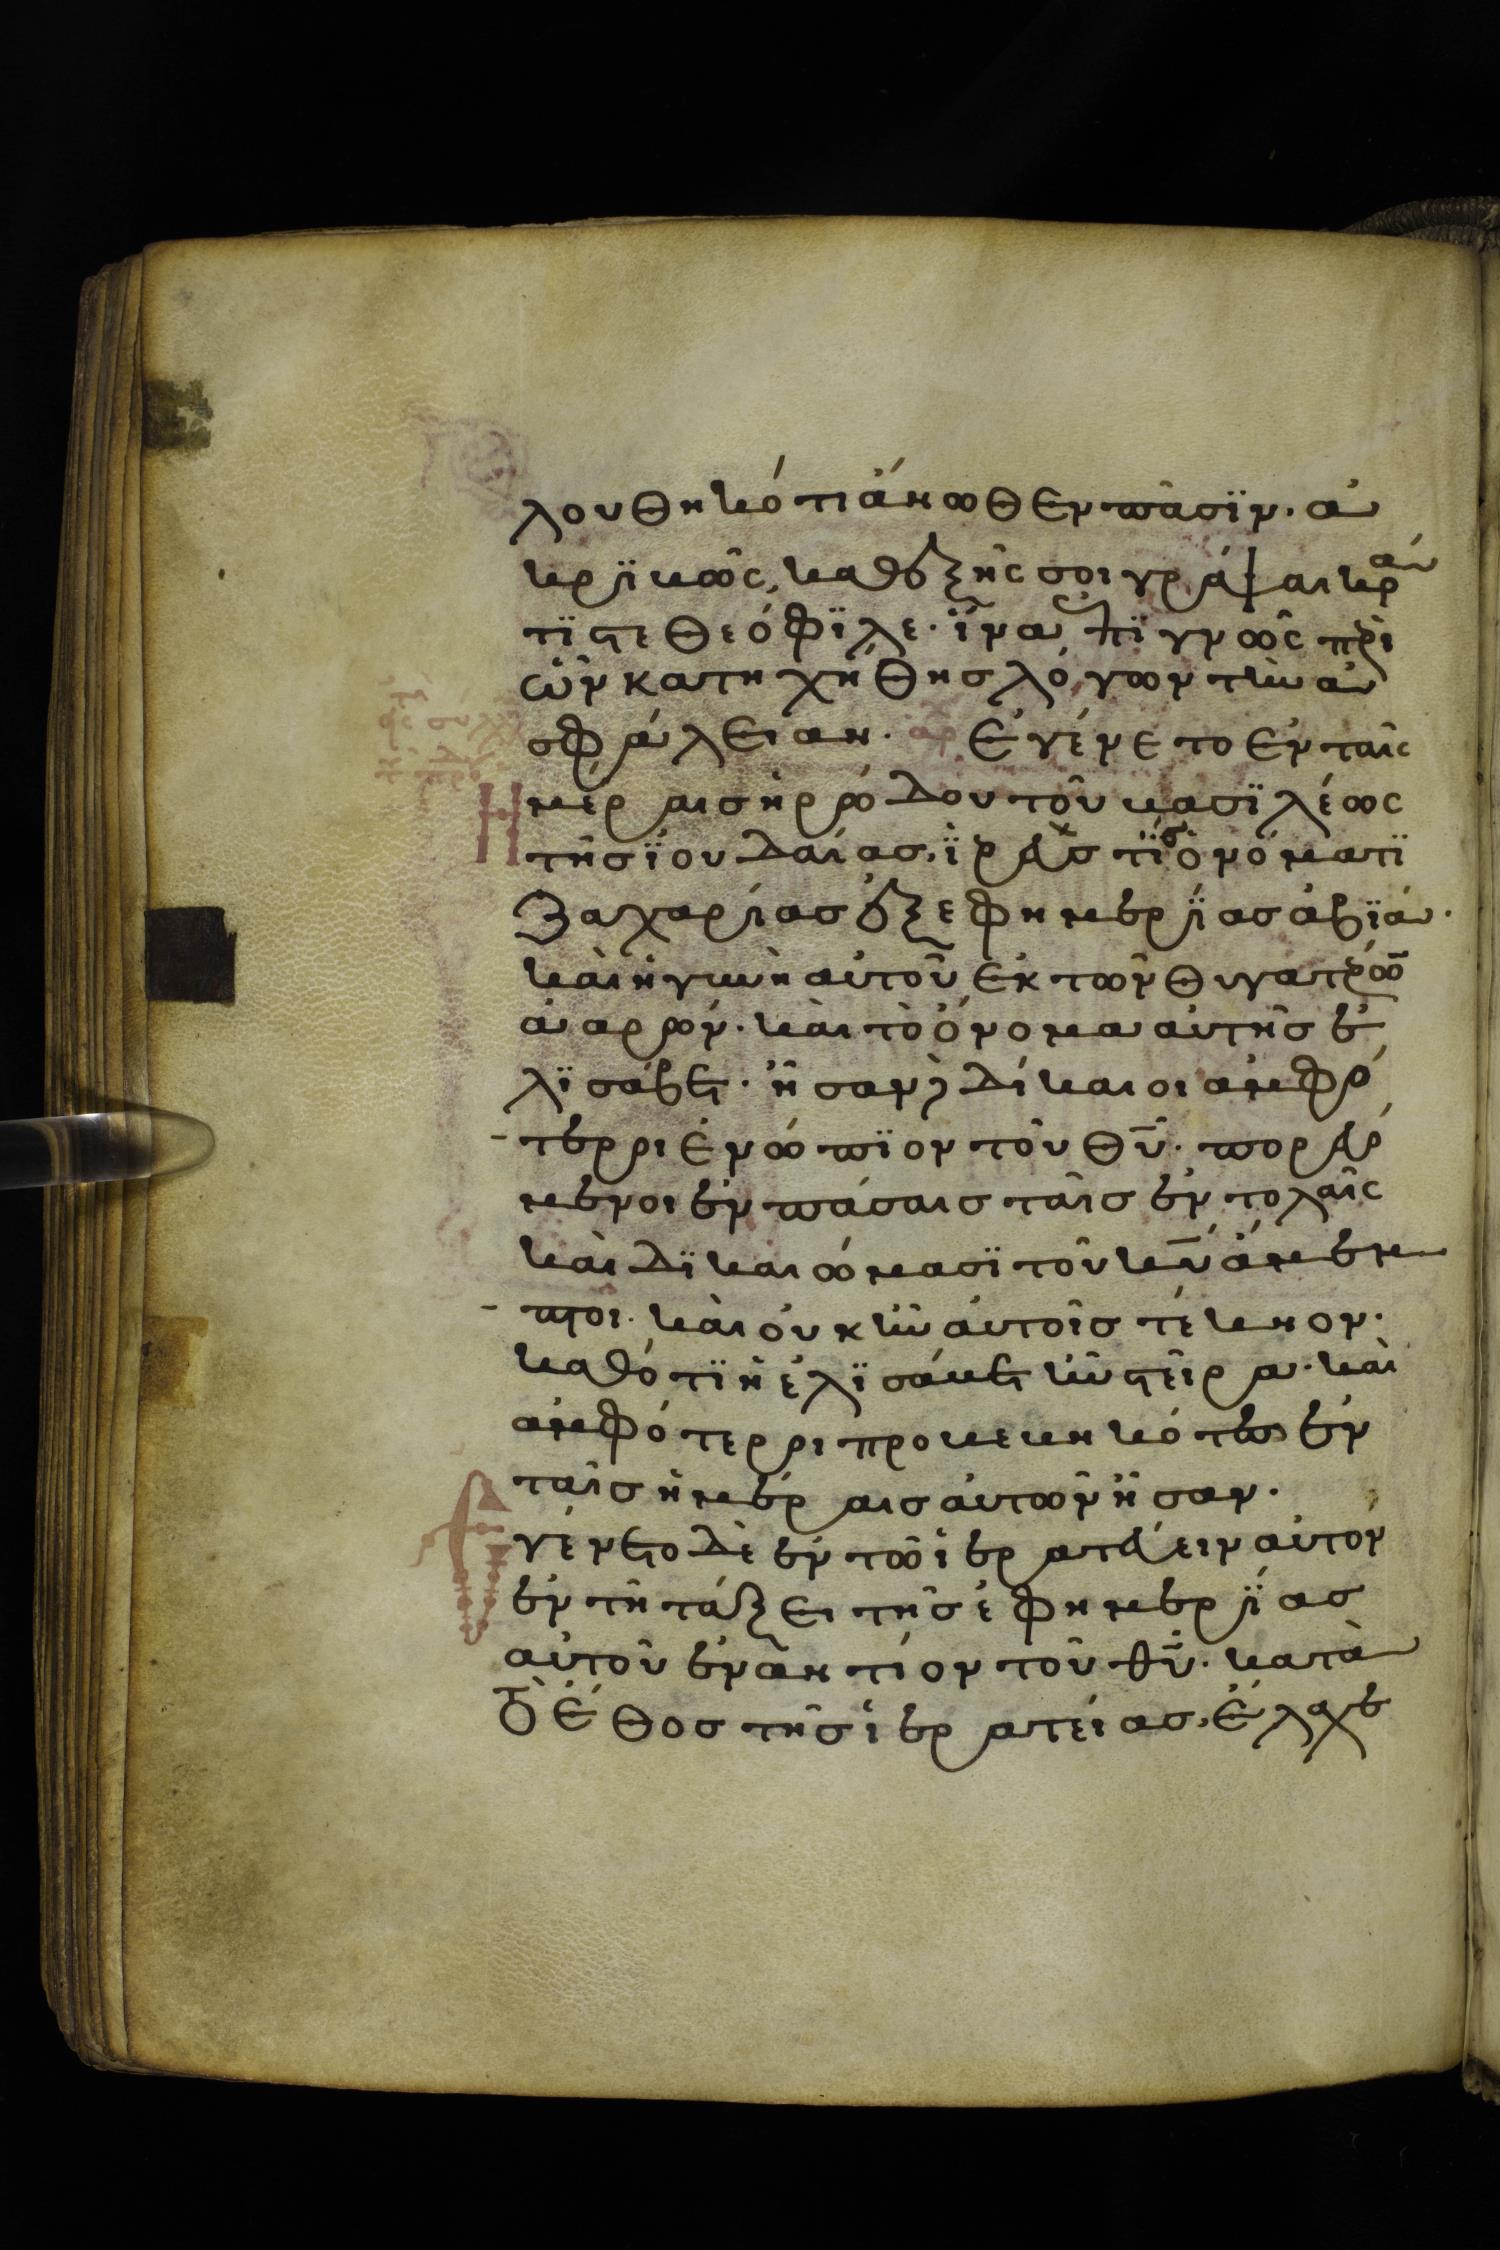 λουθηκότι ἄνωθεν πᾶσϊν· ἀ
κρϊβῶς, καθεξῆς σοι γράψαι κρά
τϊστε θεόφϊλε· ἵνα ἐπϊγνῶς περὶ
ὧν κατηχήθησ λόγων τὴν ἀ
σφάλειαν· ἀρ Ἐγένετο ἐν ταῖς
Ημέραισ ἡρώδου τοῦ βασϊλέως
τῆσ ϊουδαίασ, ϊερεύσ τϊσ ὀνόματϊ
Ζαχαρίασ ἐξ εφημερϊασ ἀβϊά·
καὶ ἡ γυνὴ αὐτοῦ ἐκ τῶν θυγατέρων
ἀαρών· καὶ τὸ ὄνομα αὐτῆσ ἐ
λϊσάβετ· ἦσαν δὲ δίκαιοι ἀμφό
τεροι ἐνώπϊον τοῦ θῦ· πορευό
μενοι ἐν πάσαισ ταῖσ ἐντολαῖς
καὶ δϊκαιώμασϊ τοῦ κῦ ἄμεμ
πτοι· καὶ οὐκ ἦν αὐτοῖσ τέκνον·
καθότϊ ἡ ἐλϊσάβετ ἦν στεῖρα· καὶ
ἀμφότεροι προβεβηκότεσ ἐν
ταῖσ ἡμέραισ αὐτῶν ἦσαν·
Εγένετο δὲ ἐν τῶ ἱερατεύειν αὐτὸν
ἐν τῆ τάξει τῆσ ἐφημερϊασ
αὐτοῦ ἐναντίον τοῦ θῦ· κατὰ
τὸ ἔθοσ τῆσ ἱερατείασ, ἔλαχε